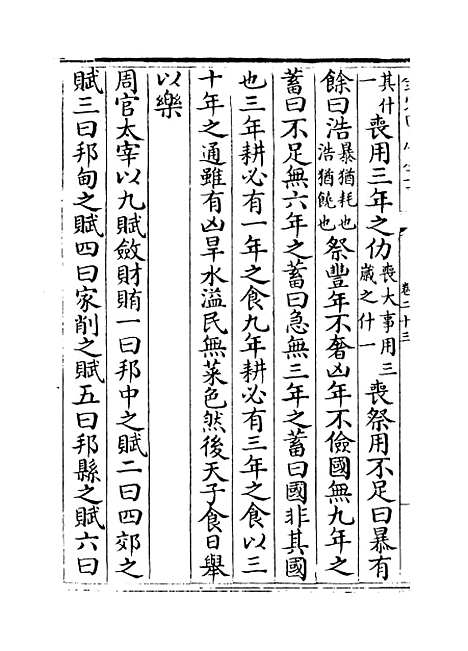 其什一喪用三年之仂喪大事用三歲之什一喪祭用不足曰暴有
餘曰浩暴猶耗也浩猶饒也祭豐年不奢凶年不儉國無九年之
蓄曰不足無六年之蓄曰急無三年之蓄曰國非其國
也三年耕必有一年之食九年耕必有三年之食以三
十年之通雖有凶旱水溢民無菜色然後天子食日舉
以樂
周官太宰以九賦斂財賄一曰邦中之賦二曰四郊之
賦三曰邦甸之賦四曰家削之賦五曰邦縣之賦六曰
卷二十三